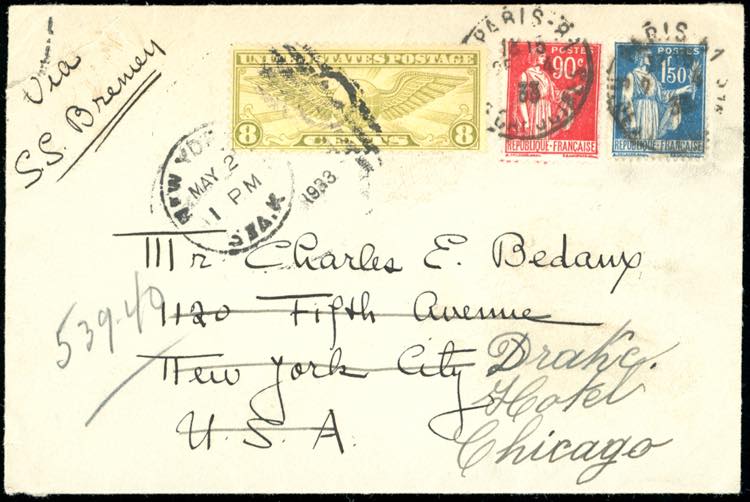 Via
S.S. Bremen
UNITED STATES POSTAGE
8 CENTS 8
NEW YORK
MAY 2
11 PM
1933
PARIS
33
POSTES
90c
REPUBLIQUE-FRANÇAISE
PARIS
POSTES
1f50
REPUBLIQUE-FRANÇAISE
Mr Charles E. Bedaux
1120 Fifth Avenue
New York City
U.S.A.
539-40
Drake
Hotel
Chicago